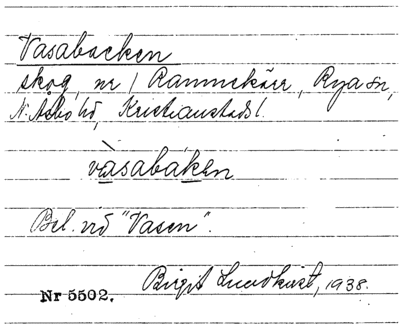 Vasabacken
skog, nr 1 Rammekärr, Rya sn,
N. Åsbo hd, Kristianstads l.
våsabáken
Bel. vid "Vasen".
Birgit Lundkvist, 1938.
Nr 5502.